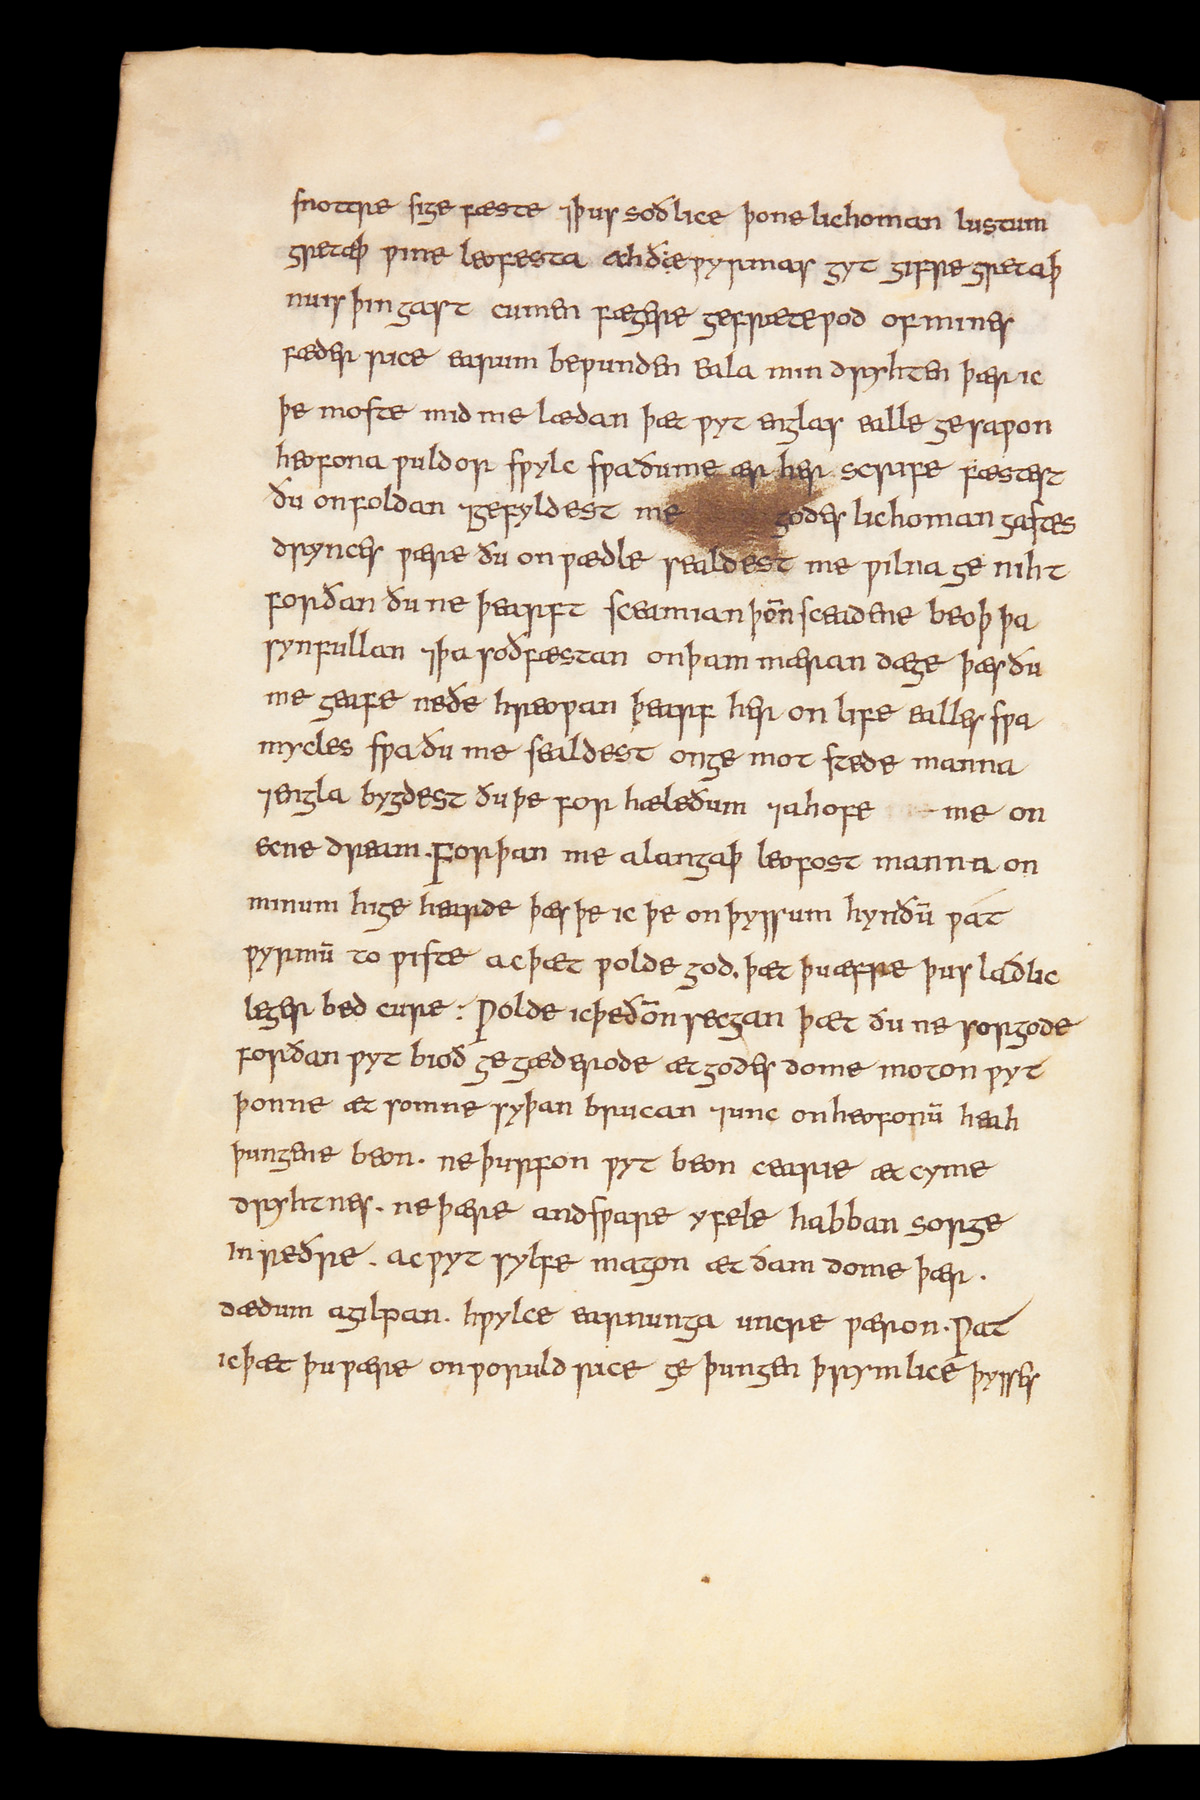 snottre sige fæste ⁊þus soðlice þone lichoman lustum
gretæþ ƿine leofesta æhðie ƿyrmas gyt gifre gretaþ
nuis þin gast cumen fægere gefrætewod of mines
fæder rice earum beƿunden eala min dryhten þær ic
þe moste mid me lædan þæt ƿyt englas ealle gesaƿon
heofona ƿuldor sƿylc sƿa ðume ær her scrife fæstest
ðu onfoldan ⁊gefyldest me godes lichoman gastes
drynces ƿære ðu on ƿædle sealdest me ƿilna ge niht
forðan ðu ne þearft sceamian þoñ sceadene beoþ þa
synfullan ⁊þa soðfæstan onþam mæran dæge þæs ðu
me geafe neðe hreoƿan þearf her on life ealles sƿa
mycles sƿa ðu me sealdest onge mot stede manna
⁊engla bygdest ðu þe for hæleðum ⁊ahofe me on
ecne dream. Forþan me alangaþ leofost manna on
minum hige hearde þæs þe ic þe on þyssum hynðū ƿát
ƿyrmū to ƿiste ac þæt ƿolde god. þæt þu æfre þus laðlic
leger bed cure : Ƿolde ic þe ðoñ secgan þæt ðu ne sorgode
forðan ƿyt bioð ge gæderode æt godes dome moton ƿyt
þonne æt somne syþan brucan ⁊unc on heofonū heah
þungene beon. ne þurfon ƿyt beon cearie æt cyme
dryhtnes. ne þære andsƿare yfele habban sorge
in reðre. ac ƿyt sylfe magon æt ðam dome þær.
dædum agilpan. hƿylce earnunga uncre ƿæron. Ƿat
ic þæt þu ƿære on ƿoruld rice ge þungen þrymlice þysses